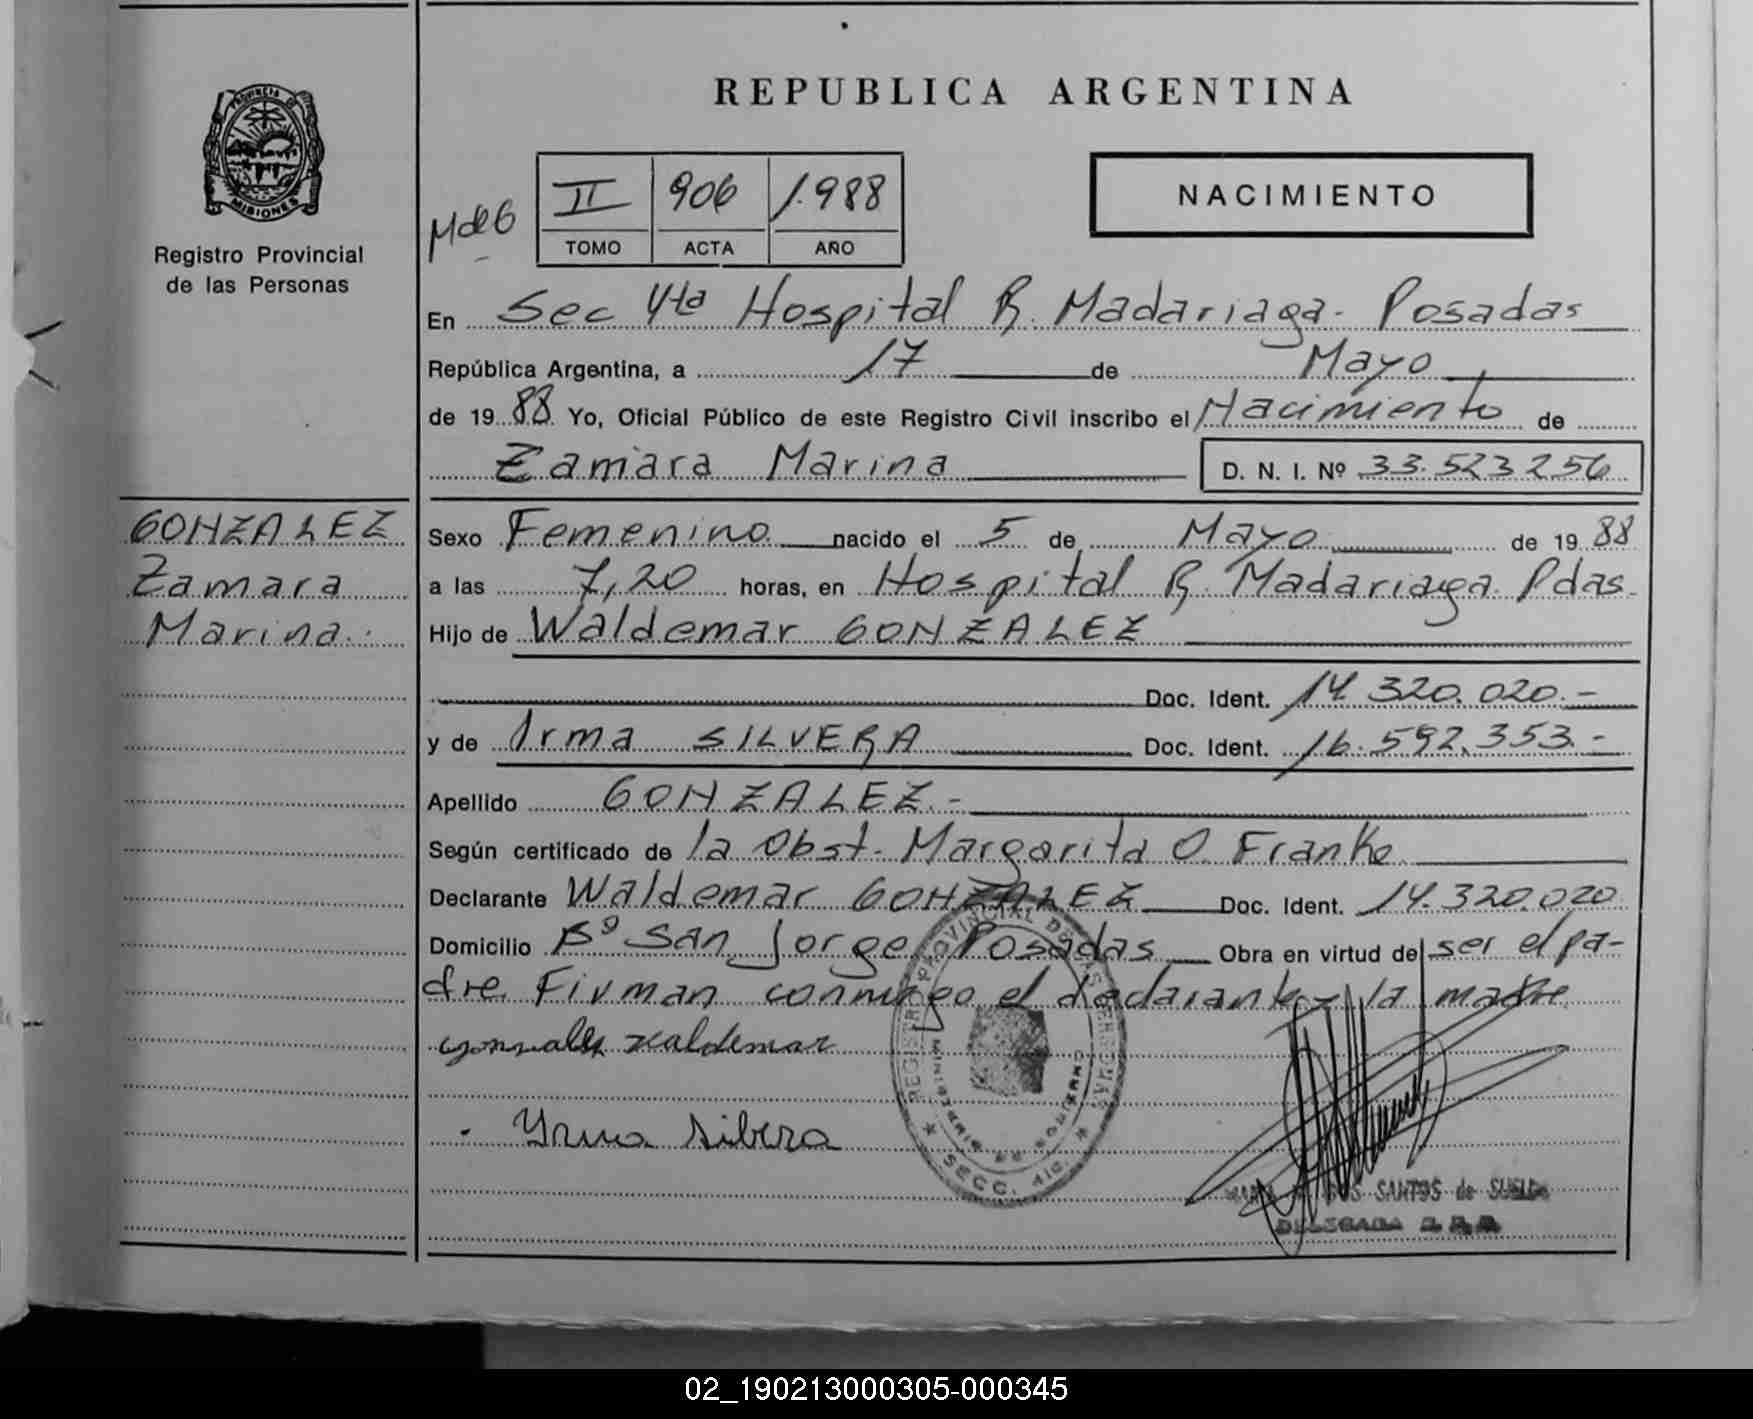 REPUBLICA ARGENTINA
PROVINCIA DE
MISIONES
Registro Provincial
de las Personas
NACIMIENTO
II 906 1.988
TOMO ACTA AÑO
En Sec 4ta Hospital R. Madariaga - Posadas
República Argentina, a 17 de Mayo
de 1988 Yo, Oficial Público de este Registro Civil inscribo el Nacimiento de
Zamara Marina D. N. I. Nº 33.523256
GONZALEZ
Zamara
Marina.
Sexo Femenino nacido el 5 de Mayo de 1988
a las 7,20 horas, en Hospital R. Madariaga. Pdas.
Hijo de Waldemar GONZALEZ
Doc. Ident. 14.320.020.-
y de Irma SILVERA Doc. Ident. 16.592.353.-
Apellido GONZALEZ.-
Según certificado de la Obst. Margarita O. Franke
Declarante Waldemar GONZALEZ Doc. Ident. 14.320.020
Domicilio Bº San Jorge Posadas Obra en virtud de ser el pa-
dre. Firman conmigo el declarante y la madre
gonzalez waldemar
Yrma silvera
REGISTRO PROVINCIAL DE LAS PERSONAS
MINISTERIO DE GOBIERNO
SECC. 4ta.
SANTOS de
DELEGADA
02_190213000305-000345